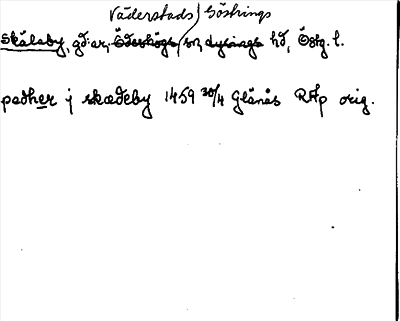 Väderstads Göstrings
Skålaby, gd. ar, Ödeshögs sn, Lysings hd, Östg. l.
padher j skædeby 1459 30/4 Glänås RAp orig.